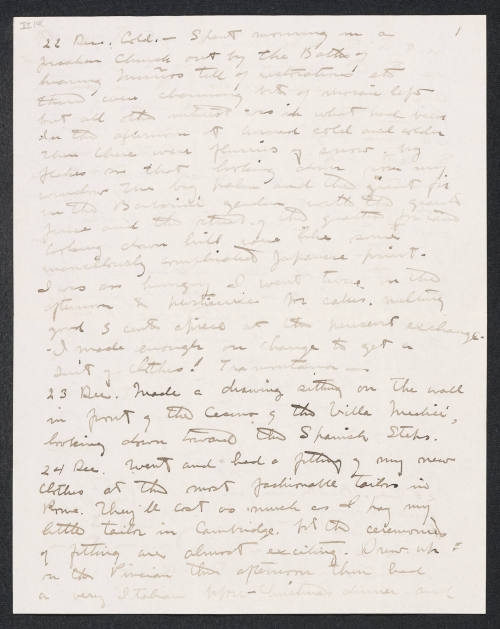 1
22 Dec. Cold. — Spent morning in a
church out by the Baths of
hearing tell of restorations etc
there were charming bits of mosaic left
but all the interest was in what had been
In the afternoon it turned cold and colder
Then there were flurries of snow. big
flakes so that looking down from my
window the big palm and the giant fir
in the garden with the
and the street of the
looking down hill were like some
marvelously complicated Japanese print.
I was so hungry I went twice in the
afternoon to for cakes.
good 3 cents apiece at the present exchange.
- I made enough on change to get a
suit of clothes! Tramontana —
23 Dec. Made a drawing sitting on the wall
in front of the Casino of the Villa Medici,
looking down toward the Spanish Steps.
24 Dec. Went and had a fitting of my new
clothes at the most fashionable tailors in
Rome. They'll cost as much as I pay my
little tailor in Cambridge, but the ceremonies
of fitting are almost exciting. Drew up
on the Pincian this afternoon then had
a very Italian Christmas dinner and